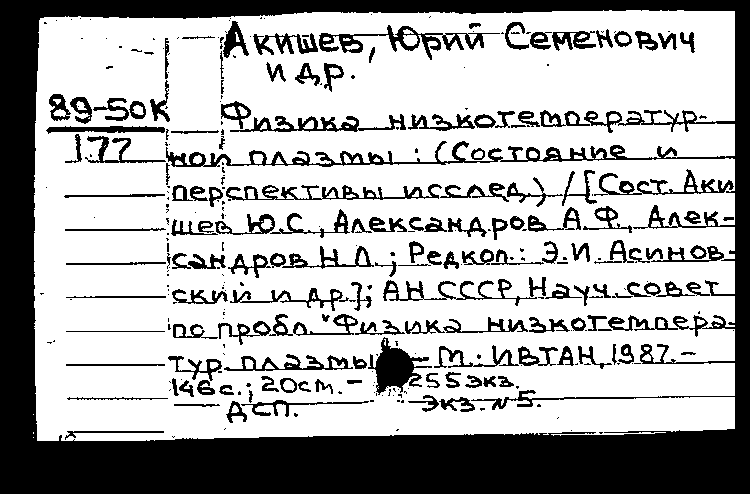 Акишев, Юрий Семенович
и др.
89-50К
177
Физика низкотемператур-
ной плазмы : (Состояние и
перспективы исслед.) / [Сост. Аки
шев Ю.С., Александров А.Ф., Алек-
сандров Н.Л. ; Редкол.: Э.И. Асинов-
ский и др.]; АН СССР, Науч. совет
по пробл. "Физика низкотемпера-
тур. плазмы — М.: ИВТАН, 1987.—
146 с.; 20 см. — 255 экз.
ДСП. Экз. № 5.